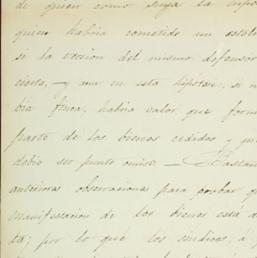 de quien como suya la
quien habria cometido un
si la version del mismo defensor
cierta, y aun en esta hipótesis, si
bia finca, habria valor que
parte de los bienes cedidos y
debió ser punto omiso. —
anteriores observaciones para probar
manifestacion de los bienes está
ta; por lo que los síndicos, á